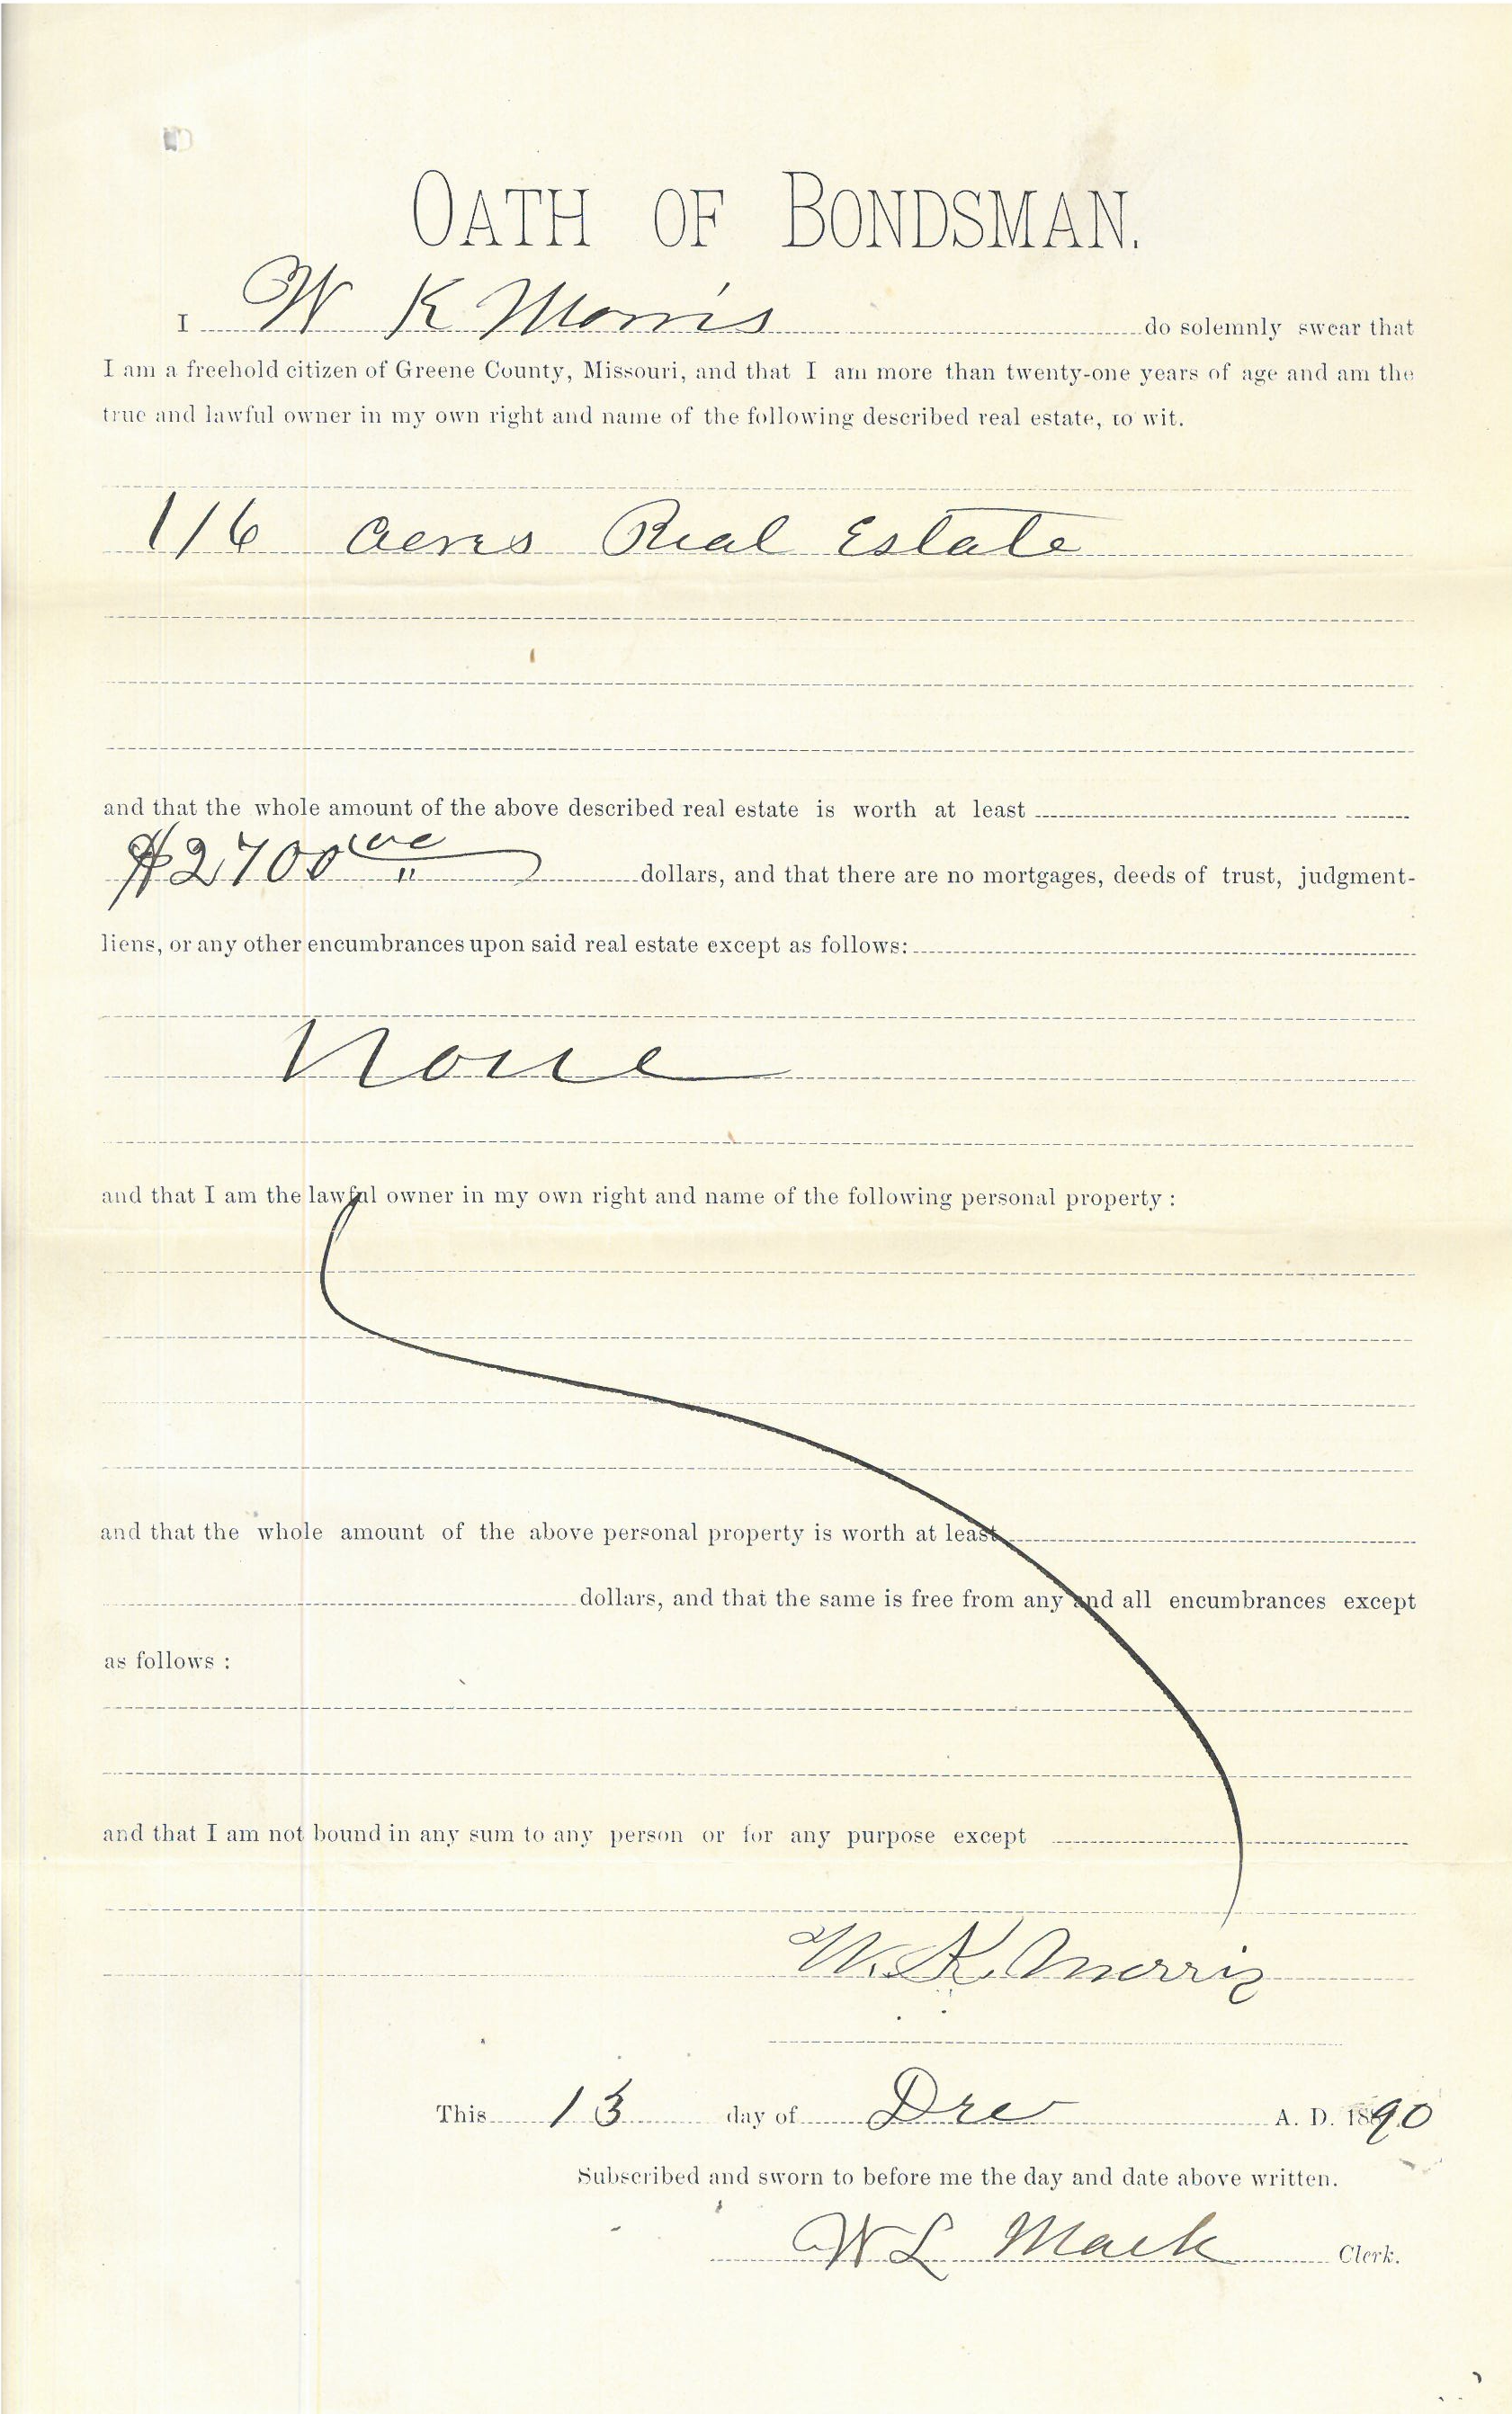 OATH OF BONDSMAN.
I W K Morris do solemnly swear that
I am a freehold citizen of Greene County, Missouri, and that I am more than twenty-one years of age and am the
true and lawful owner in my own right and name of the following described real estate, to wit.
116 acres Real Estate
and that the whole amount of the above described real estate is worth at least
$2700 00 dollars, and that there are no mortgages, deeds of trust, judgment-
liens, or any other encumbrances upon said real estate except as follows:
None
and that I am the lawful owner in my own right and name of the following personal property :
and that the whole amount of the above personal property is worth at least
dollars, and that the same is free from any and all encumbrances except
as follows :
and that I am not bound in any sum to any person or for any purpose except
W. K. Morris
This 13 day of Dec A. D. 1890
Subscribed and sworn to before me the day and date above written.
W L Mack Clerk.